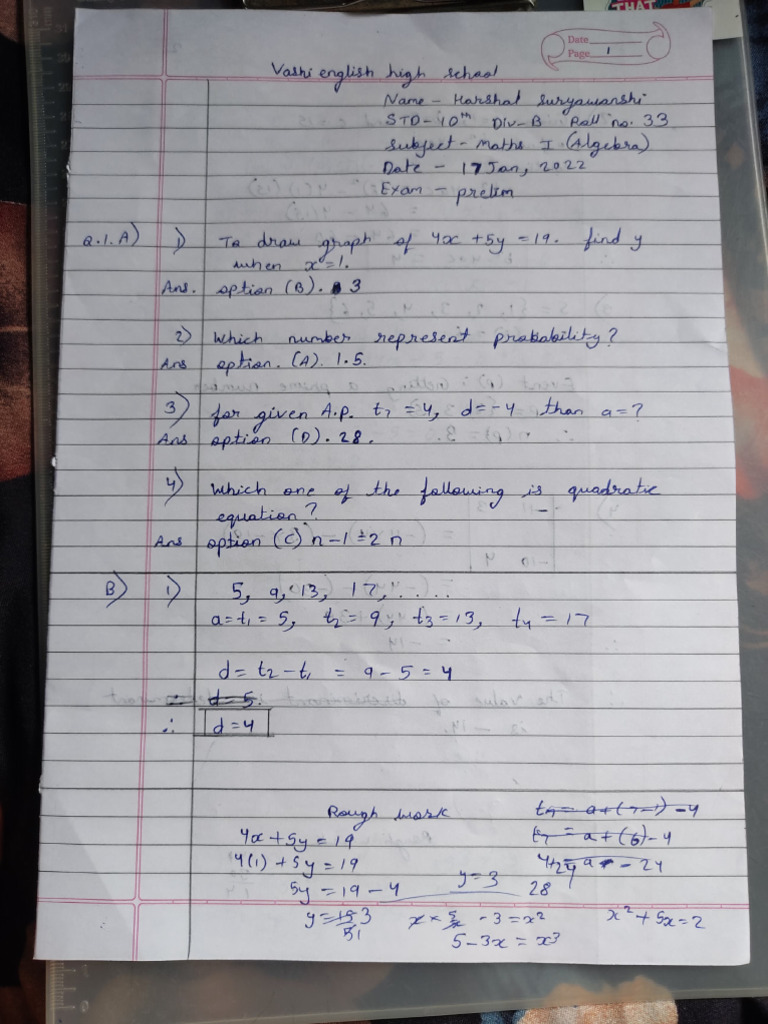 THAT
Date
Page 1
Vashi english high school
Name - Harshal Suryawanshi
STD - 10th Div-B Roll no. 33
Subject - Maths I (Algebra)
Date - 17 Jan, 2022
Exam - prelim
Q.1. A) 1) To draw graph of 4x + 5y = 19. find y
when x = 1.
Ans. option (B). 3
2) Which number represent probability?
Ans option. (A). 1.5.
3) for given A.p. t7 = 4, d = -4, than a = ?
Ans option (D). 28.
4) Which one of the following is quadratic
equation?
Ans option (C) n - 1 = 2 n
B) 1) 5, 9, 13, 17, . . . .
a = t1 = 5, t2 = 9, t3 = 13, t4 = 17
d = t2 - t1 = 9 - 5 = 4
d = 5.
∴ d = 4
Rough work
4x + 5y = 19
4(1) + 5y = 19
5y = 19 - 4
y = 15 3
51
y = 3
t7 = a + (7-1) - 4
t7 = a + (6) - 4
4 = a - 24
28
- 3 = x²
5 - 3x = x³
x² + 5x = 2